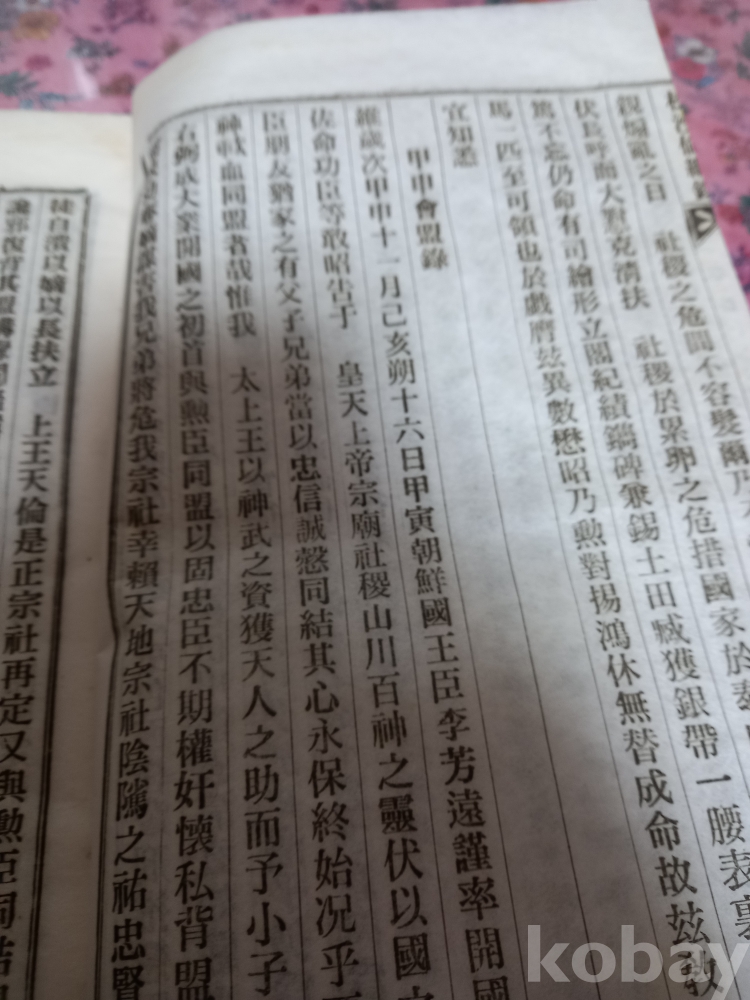 親煽亂之日 社稷之危間不容髮爾乃
伏艮呼而大懟克濟扶 社稷於累卵之危措國家於泰
篤不忘仍命有司繪形立閣紀績鐫碑兼錫土田臧獲銀帶一腰表裏
馬一匹至可領也於戲膺玆異數懋昭乃勳對揚鴻休無替成命故玆敎
宜知悉
甲申會盟錄
維歲次甲申十一月己亥朔十六日甲寅朝鮮國王臣李芳遠謹率開國
佐命功臣等敢昭告于 皇天上帝宗廟社稷山川百神之靈伏以國
臣朋友猶家之有父子兄弟當以忠信誠慤同結其心永保終始况乎
神㰱血同盟者哉惟我 太上王以神武之資獲天人之助而予小子
右弼成大業開國之初首與勳臣同盟以固忠臣不期權奸懷私背盟
我兄弟將危我宗社幸賴天地宗社陰隲之祐忠賢
徒自潰以嫡以長扶立 上王天倫是正宗社再定又與勳臣同結
讒邪復背其盟
kobay